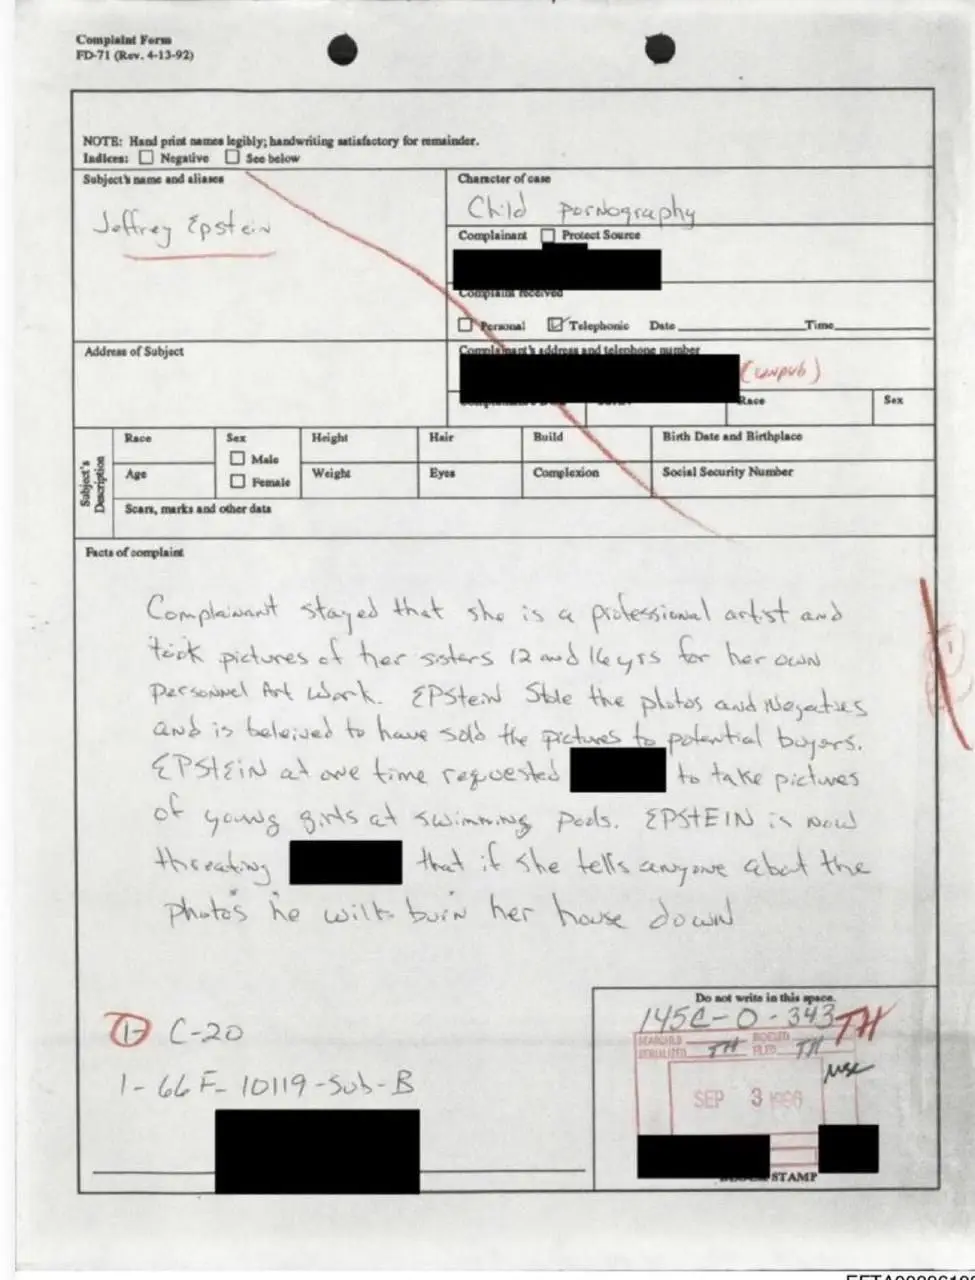 Complaint Form
FD-71 (Rev. 4-13-92)
NOTE: Hand print names legibly; handwriting satisfactory for remainder.
Indices: Negative See below
Subject's name and aliases
Jeffrey Epstein
Character of case
Child pornography
Complainant Protect Source
Complaint received
Personal Telephonic Date Time
Address of Subject
Complainant's address and telephone number
(unpub)
Race Sex
Subject's Description
Race Sex Height Hair Build Birth Date and Birthplace
Male
Age Female Weight Eyes Complexion Social Security Number
Scars, marks and other data
Facts of complaint
Complainant stayed that she is a professional artist and
took pictures of her sisters 12 and 16 yrs for her own
personnel Art Work. EPStein Stole the photos and Negatives
and is beleived to have sold the pictures to potential buyers.
EPSTEIN at one time requested to take pictures
of young girls at swimming pools. EPSTEIN is now
threating that if she tells anyone about the
photos he will burn her house down
Do not write in this space.
145C-0-343 TH
SEARCHED INDEXED
SERIALIZED TH FILED TH
SEP 3 1996
STAMP
1- C-20
1- 66F-10119-Sub-B